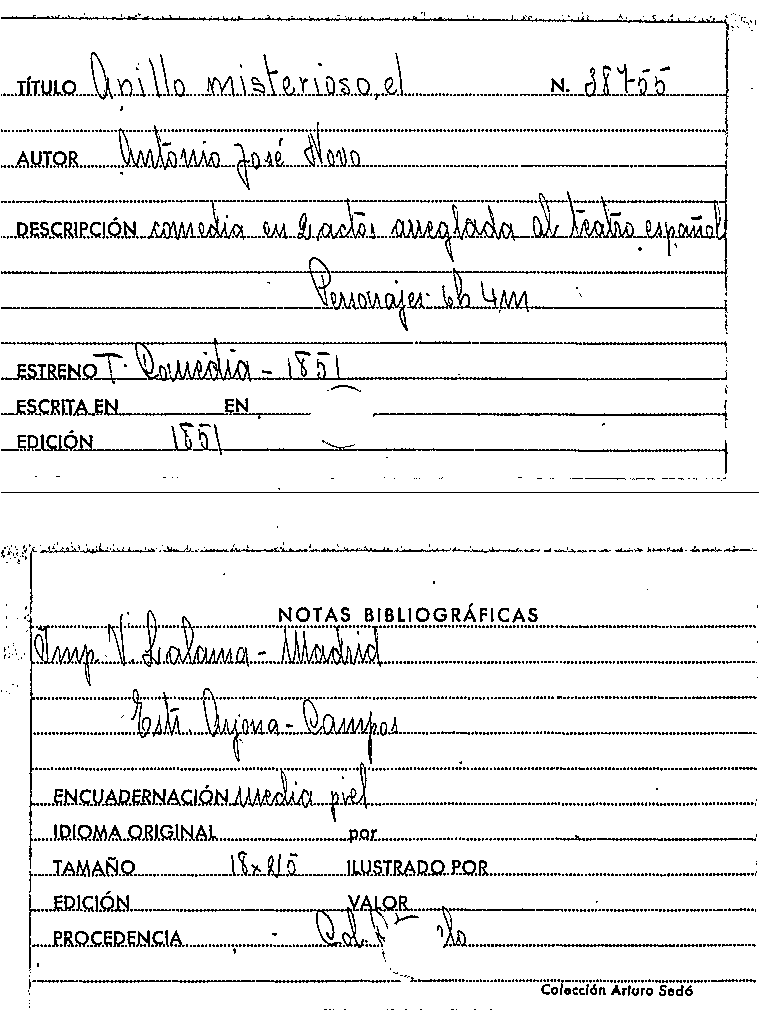 TÍTULO Anillo misterioso, el N. 38755
AUTOR Antonio José Novo
DESCRIPCIÓN comedia en 2 actos arreglada al teatro español
Personajes: 6h 4m
ESTRENO T. Comedia - 1851
ESCRITA EN EN
EDICIÓN 1851
NOTAS BIBLIOGRÁFICAS
Imp. V. Lalama - Madrid
Estr. Arjona - Campos
ENCUADERNACIÓN media piel
IDIOMA ORIGINAL por
TAMAÑO ILUSTRADO POR
EDICIÓN VALOR
PROCEDENCIA Col.
Colección Arturo Sedó